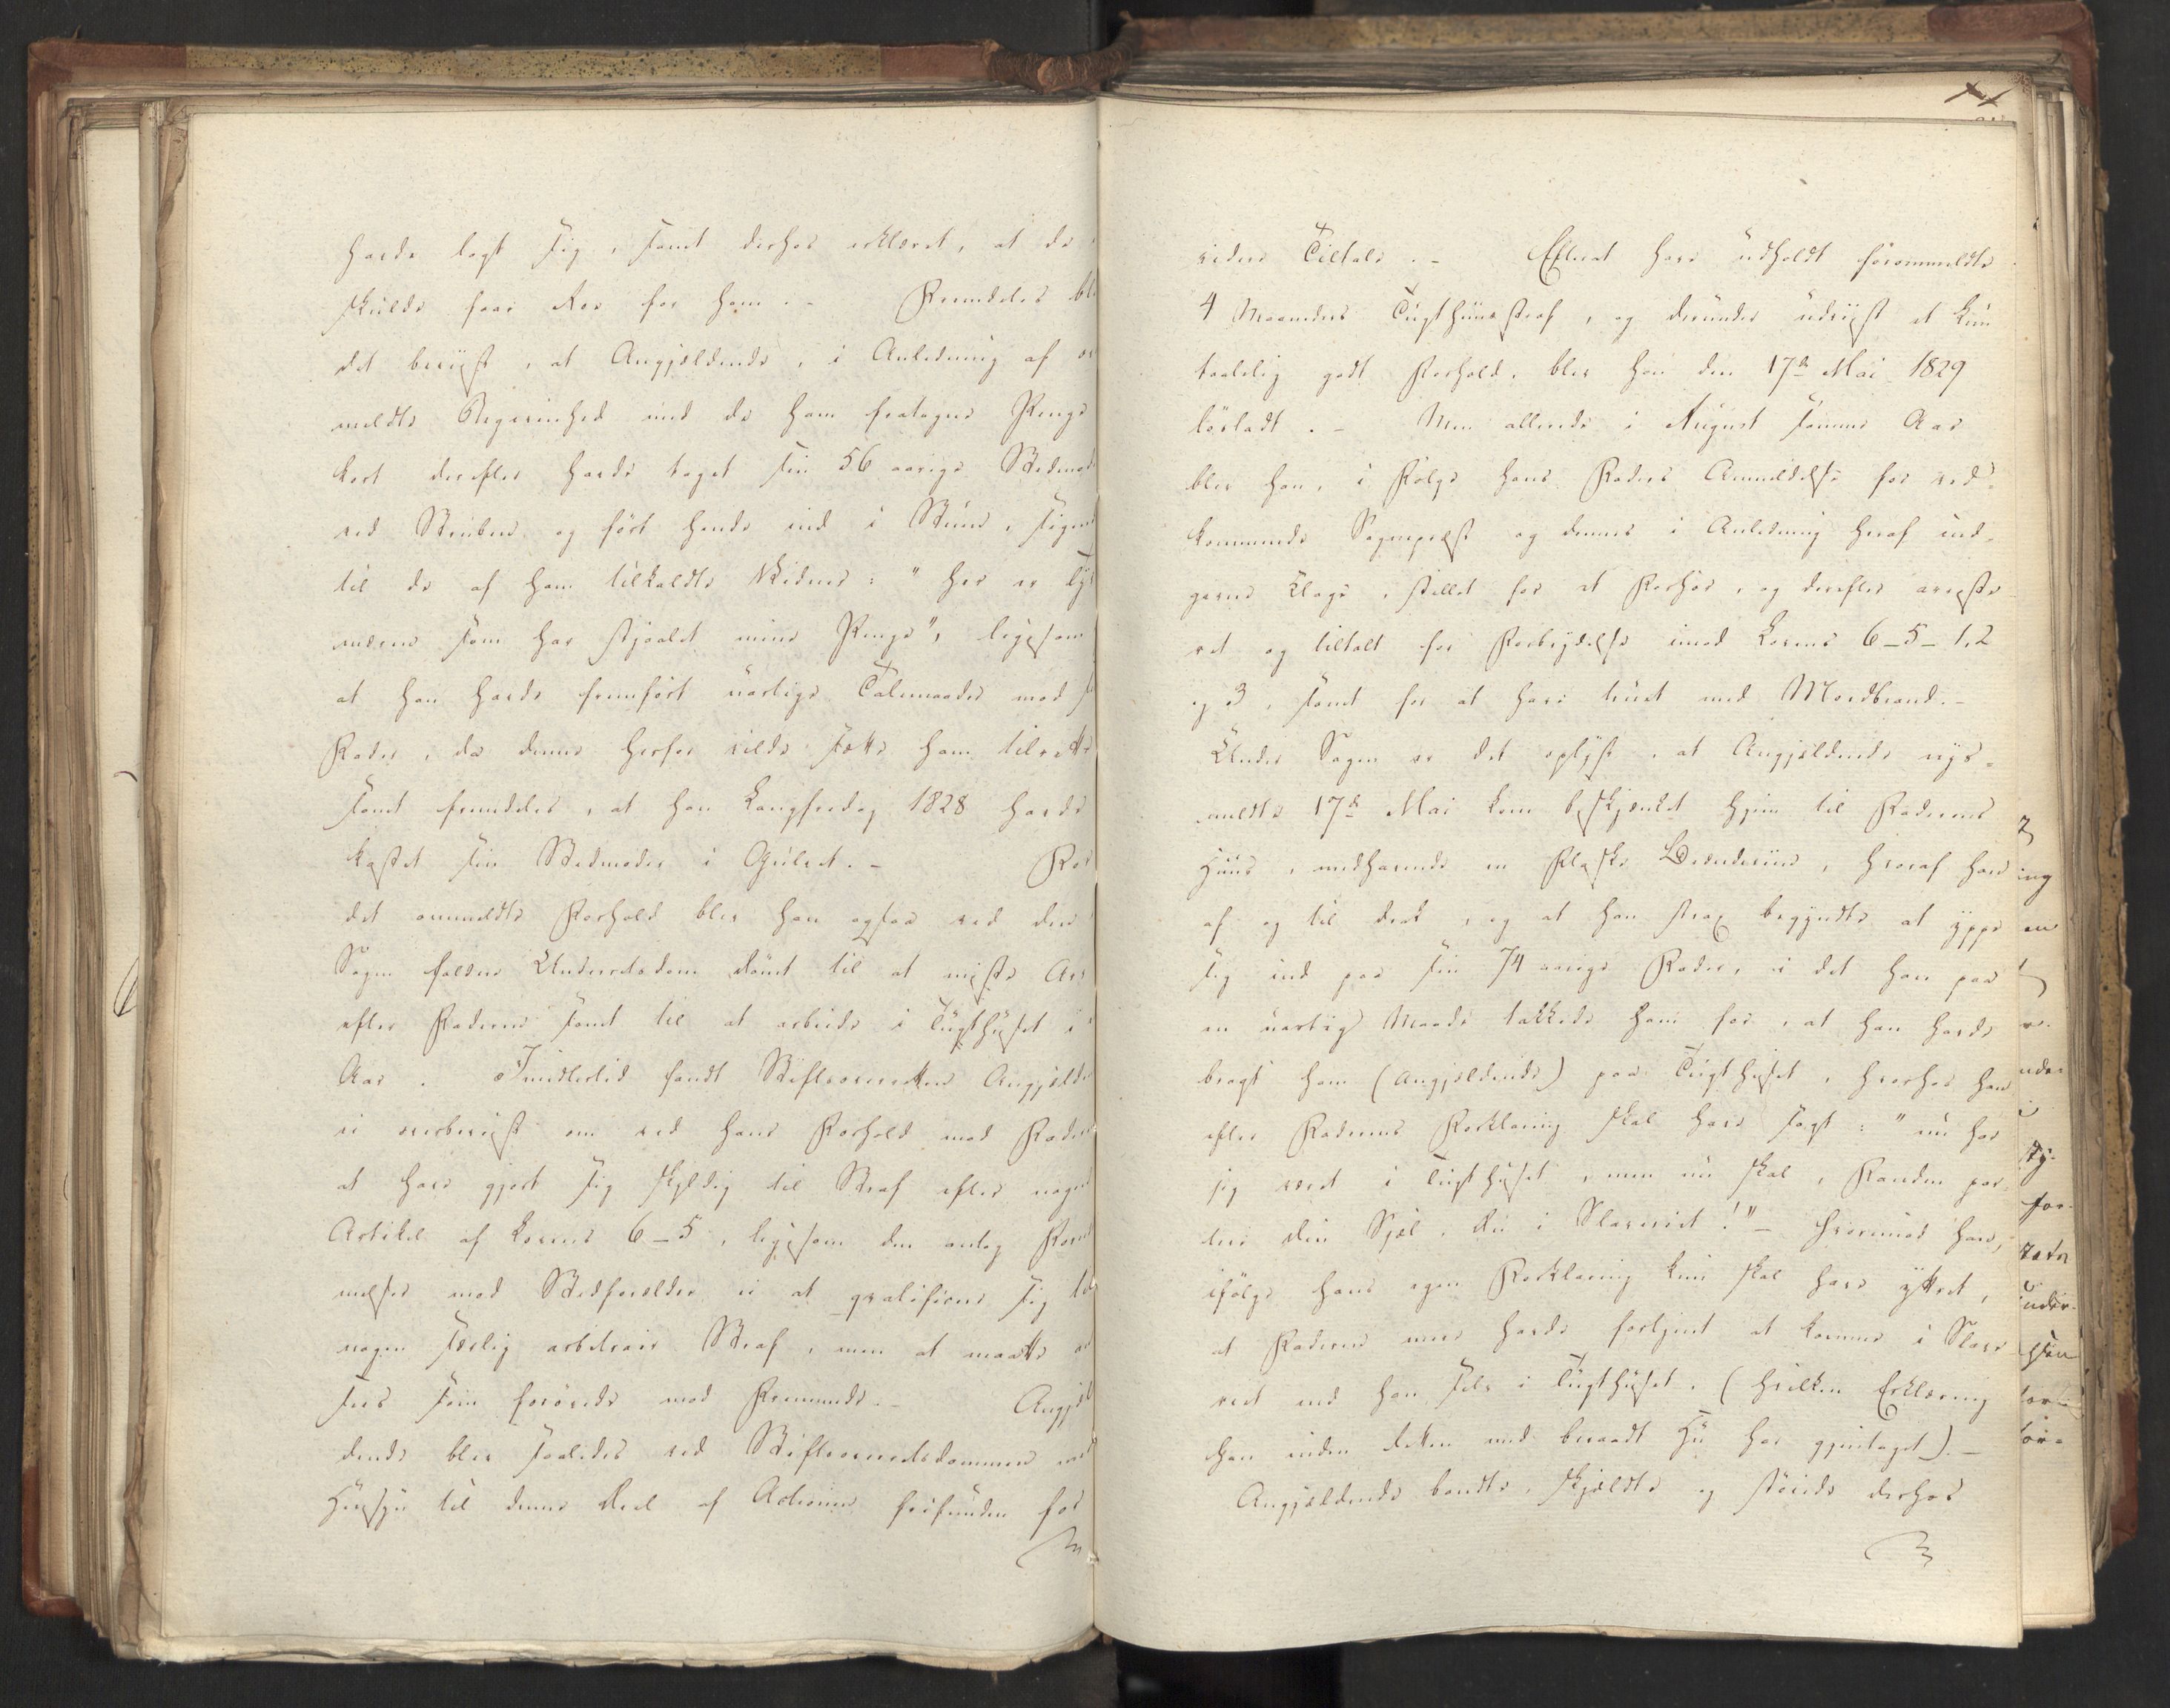 havde lagt sig, samt derhos erklæret, at de
skulde faae Roe for ham. - Fremdeles ble
det beviist, at Angjældende, i Anledning af
meldte Begivenhed med de ham fratagne Penge
kort derefter havde taget sin 56 aarige Stedmod
ved Struben og ført hende ind i Stuen, sigend
til de af ham tilkaldte Vidner: "her er Ty
næren som har stjaalet mine Penge", ligesom
at han havde fremført uartige Talemaader mod s
Fader, da denne herfor vilde sætte ham tilrette
samt fremdeles, at han Langfredag 1828 havde
kastet sin Stedmoder i Gulvet. - For
det ommeldte Forhold blev han ogsaa ved den i
Sagen faldne Underretsdom dømt til at miste Arv
efter Faderen samt til at arbeide i Tugthuset i
Aar. Imidlertid fandt Stiftsoverretten Angjælde
ei overbeviist om ved hans Forhold mod Fader
at have gjort sig skyldig til Straf efter nogen
Artikel af Lovens 6-5, ligesom den antog Fornær
melser mod Stedforældre ei at qvalificere sig til
nogen særlig arbitrair Straf, men at maatte an
sees som forøvede mod Fremmede. - Angjæl
dende blev saaledes ved Stiftsoverretsdommen med
Hensyn til denne Deel af Actionen frifunden for
videre Tiltale. - Efterat have udholdt forommeldte
4 Maaneders Tugthuusstraf, og derunder udviist et kun
taalelig godt Forhold, blev han den 17de Mai 1829
løsladt. - Men allerede i August samme Aar
blev han, i Følge hans Faders Anmeldelse for ved-
kommende Sognepræst og dennes i Anledning heraf ind-
givne Klage, stillet for et Forhør, og derefter areste-
ret og tiltalt for Forbrydelse imod Lovens 6-5-1,2
og 3, samt for at have truet med Mordbrand. -
Under Sagen er det oplyst, at Angjældende nys-
meldte 17de Mai kom beskjænket hjem til Faderens
Huus, medhavende en Flaske Brændeviin, hvoraf han
af og til drak, og at han strax begyndte at yppe
sig ind paa sin 74 aarige Fader, i det han paa
en uartig Maade takkede ham for, at han havde
bragt ham (Angjældende) paa Tugthuset, hvorhos han
efter Faderens Forklaring skal have sagt: "nu har
jeg været i Tugthuset, men nu skal, Fanden par-
tere din Sjæl, du i Slaveriet!" - hvorimod han,
ifølge hans egen Forklaring kun skal have yttret,
at Faderen meer havde fortjent at komme i Slave
riet end han selv i Tugthuset. (hvilken Erklæring
han inden Retten med beraadt Hu har gjentaget). -
Angjældende bandte, skjældte og støiede derhos